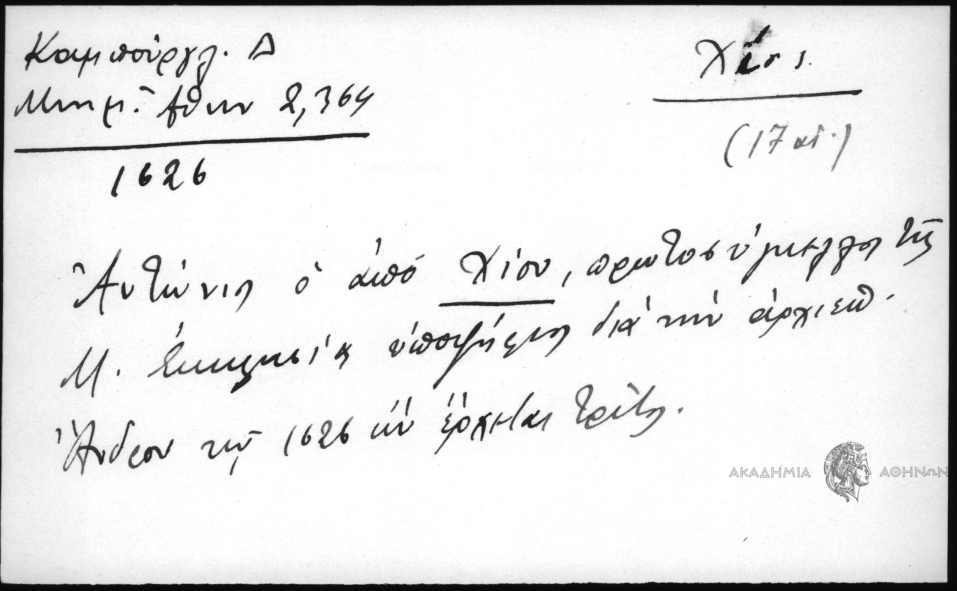 Καμπούργλ. Δ
Μνημ. Ἀθην 2, 364
1626
Χίος
(17 αἰ.)
Ἀντώνιος ὁ ἀπό Χίου, πρωτοσύγκελλος τῆς
Μ. Ἐκκλησίας ὑποψήφιος διά τήν ἀρχιεπ.
Ἄνδρου τῷ 1626 ἔρχεται τρίτος.
ΑΚΑΔΗΜΙΑ ΑΘΗΝΩΝ